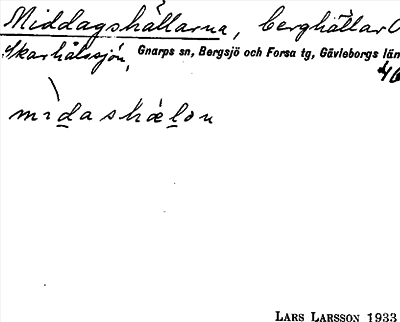 Middagshällarna, berghällar
Skarhålssjön, Gnarps sn, Bergsjö och Forsa tg, Gävleborgs län
46
mìdashælon
LARS LARSSON 1933